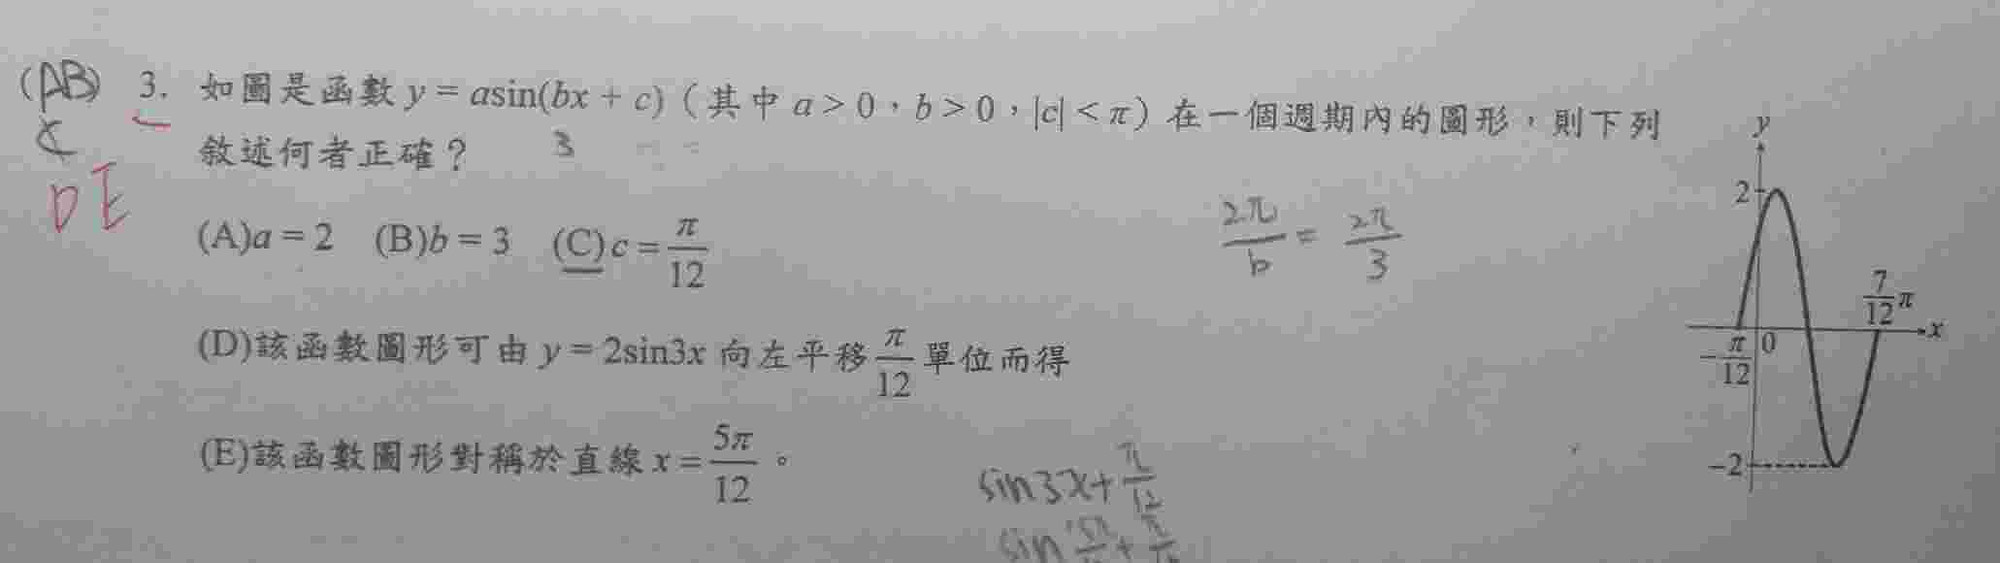 (AB) 3. 如圖是函數 y = asin(bx + c)（其中 a > 0，b > 0，|c| < π）在一個週期內的圖形，則下列
C 敘述何者正確？ 3
DE
(A)a = 2 (B)b = 3 (C)c = π/12
2π/b = 2π/3
(D)該函數圖形可由 y = 2sin3x 向左平移 π/12 單位而得
(E)該函數圖形對稱於直線 x = 5π/12。
sin3x+π/12
sin
y
2
7/12 π
x
0
-π/12
-2